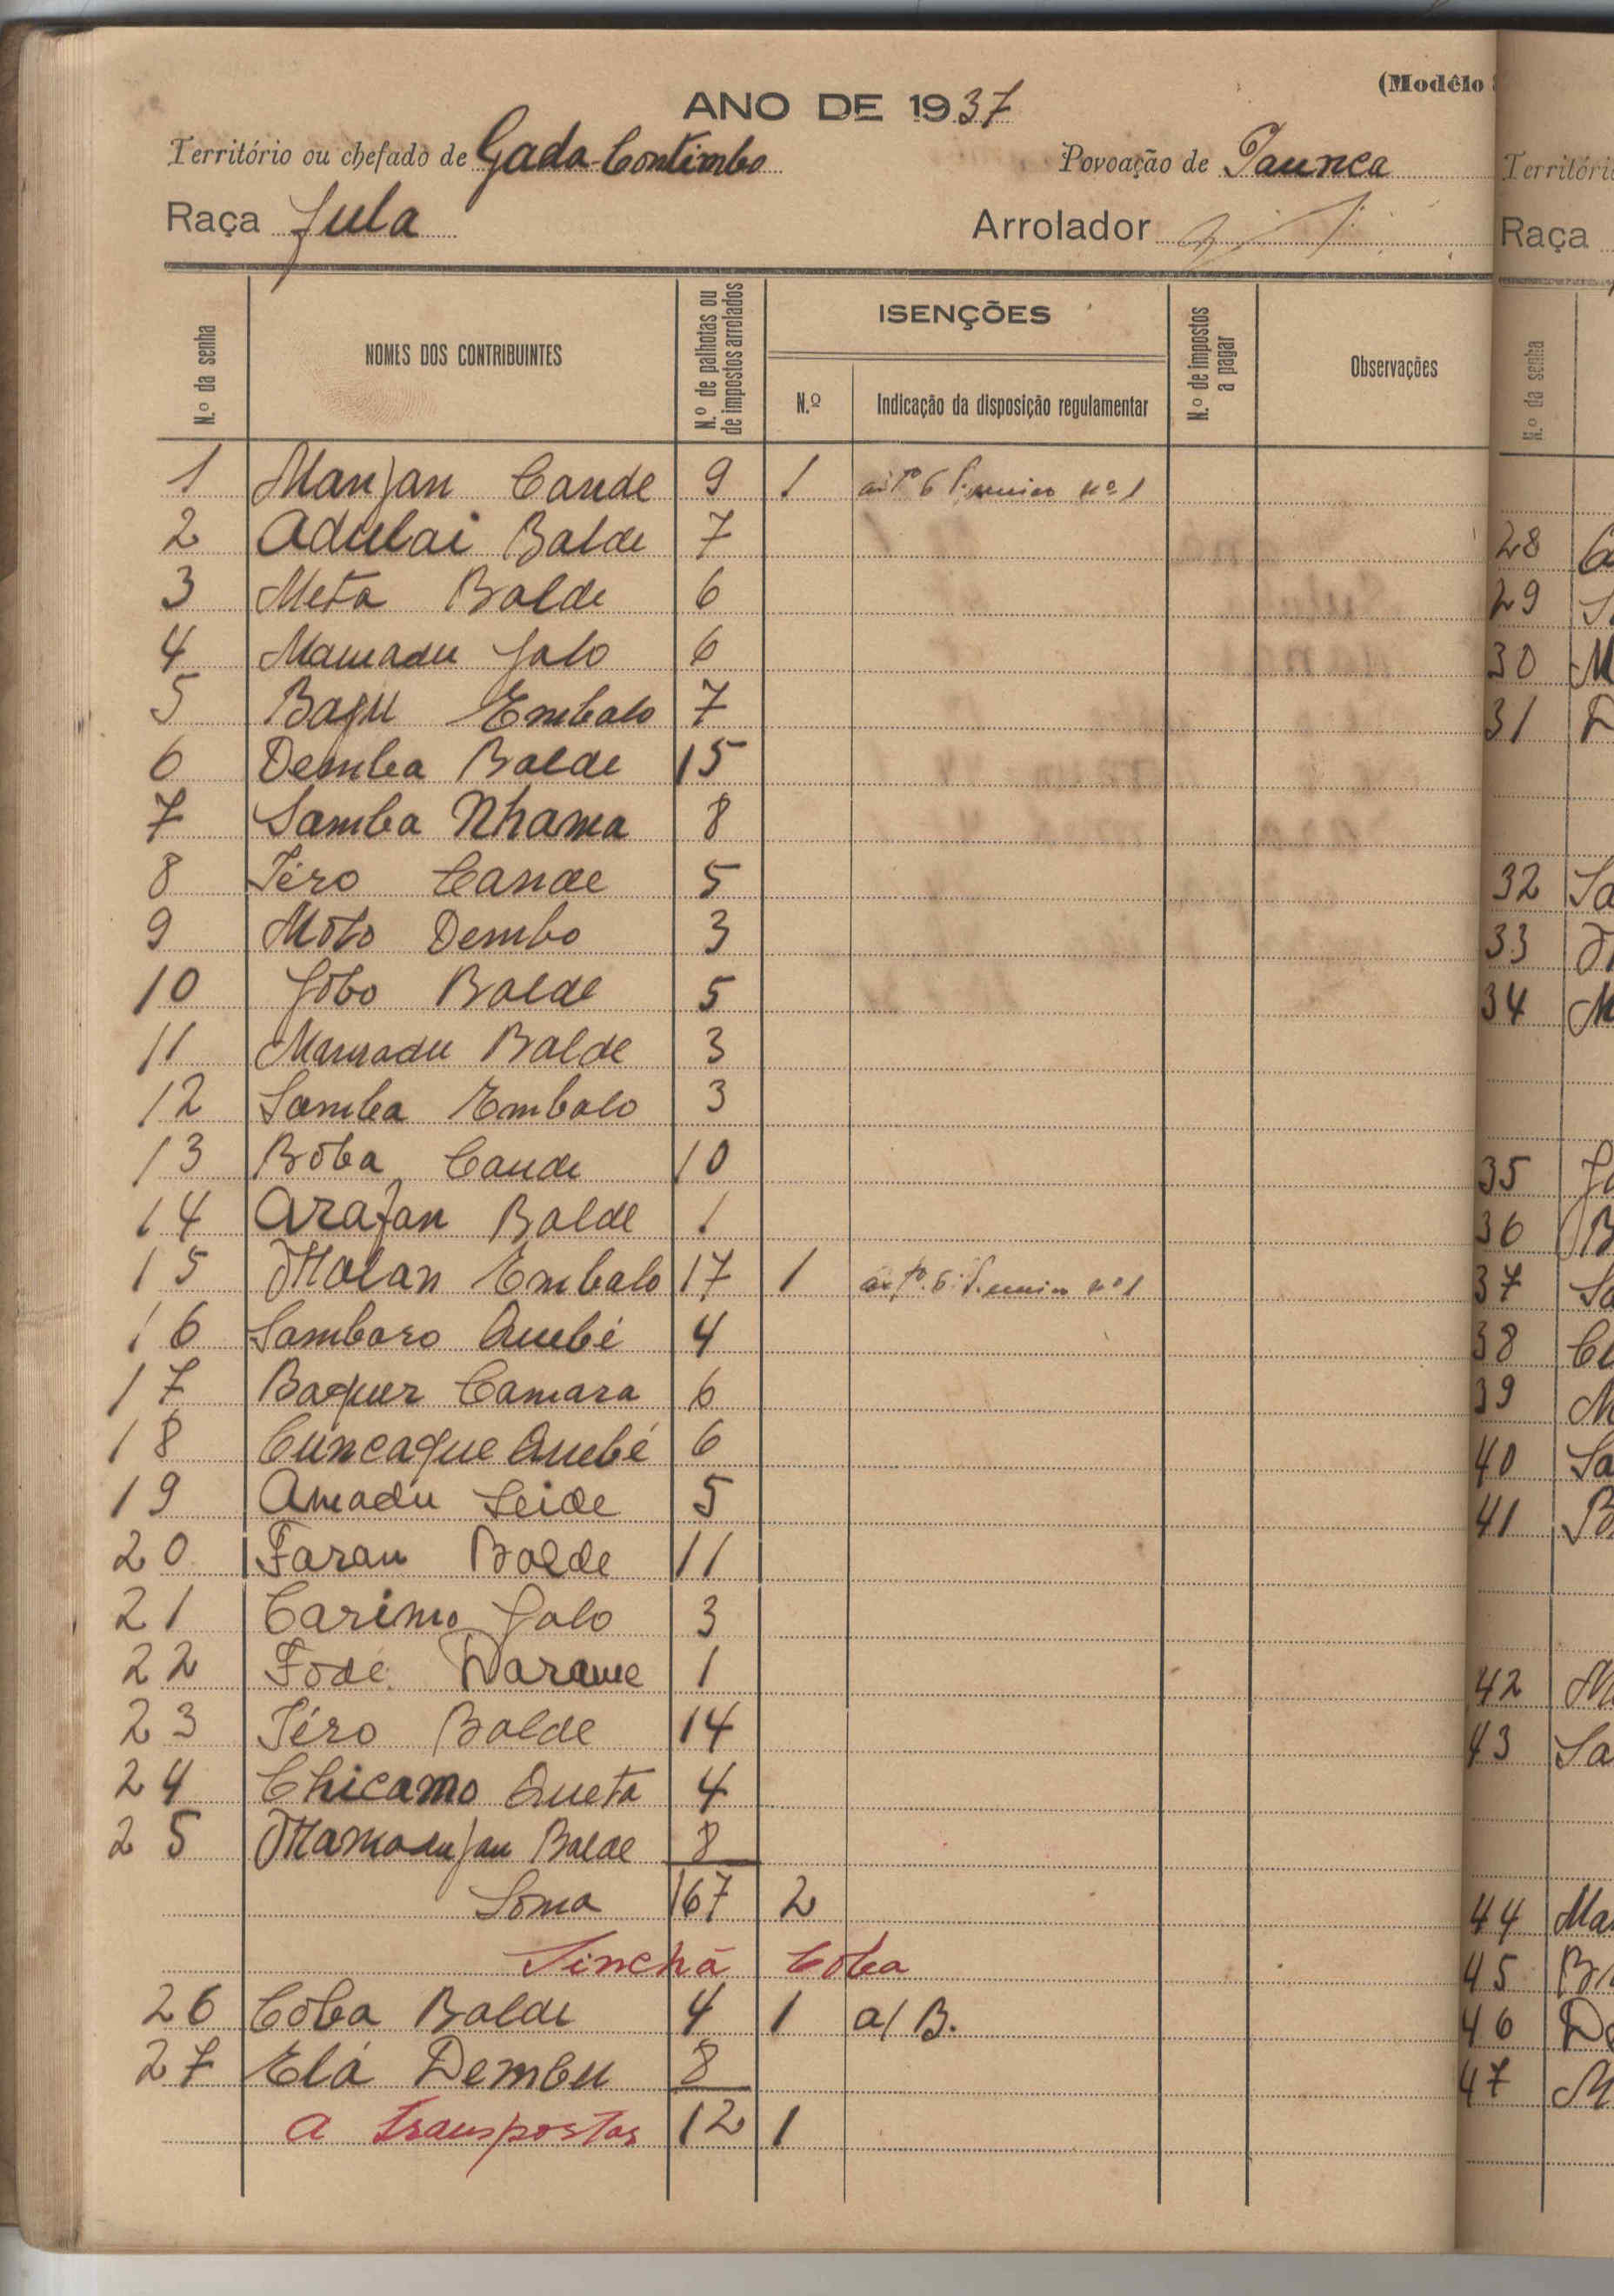 (Modêlo
ANO DE 1937
Território ou chefado de Gada-Contimbo Povoação de Paunca
Raça Fula Arrolador
N.º da senha NOMES DOS CONTRIBUINTES N.º de palhotas ou de impostos arrolados ISENÇÕES N.º Indicação da disposição regulamentar N.º de impostos a pagar Observações
1 Manjan Cande 9 1 artº 6 § unico nº 1
2 Adulai Balde 7
3 Meta Balde 6
4 Mamadu Jalo 6
5 Embalo 7
6 Demba Balde 15
7 Samba Nhama 8
8 Téro Cande 5
9 Môto Dembo 3
10 Jôbo Balde 5
11 Mamadu Balde 3
12 Samba Embalo 3
13 Bôba Cande 10
14 Arafan Balde 1
15 Malan Embalo 17 1 artº 6 § unico nº 1
16 Sambaro Quebé 4
17 Baquer Camara 6
18 Cuncaque Quebé 6
19 Amadu Seide 5
20 Faran Balde 11
21 Carimo Jalo 3
22 Fodé Darame 1
23 Téro Balde 14
24 Chicamo Queta 4
25 Mamadujan Balde 8
Soma 167 2
Sinchã Côba
26 Côba Balde 4 1 a/ B.
27 Elá Dembu 8
a transportar 12 1
Territóri
Raça
N.º da senha
28
29
30 M
31 D
32 Sa
33
34 M
35
36 B
37 Sa
38
39 M
40 Sa
41 B
42 M
43 Sa
44 Ma
45
46
47 M